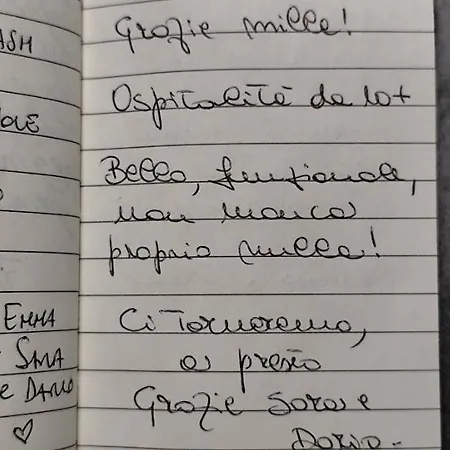 ASH
Grazie mille!
Ospitalità da 10+
Bella, funzionale,
non manca
proprio nulla!
EMMA
Ci Torneremo,
SARA
a presto
e DARIO
Grazie Sara e
Dario.